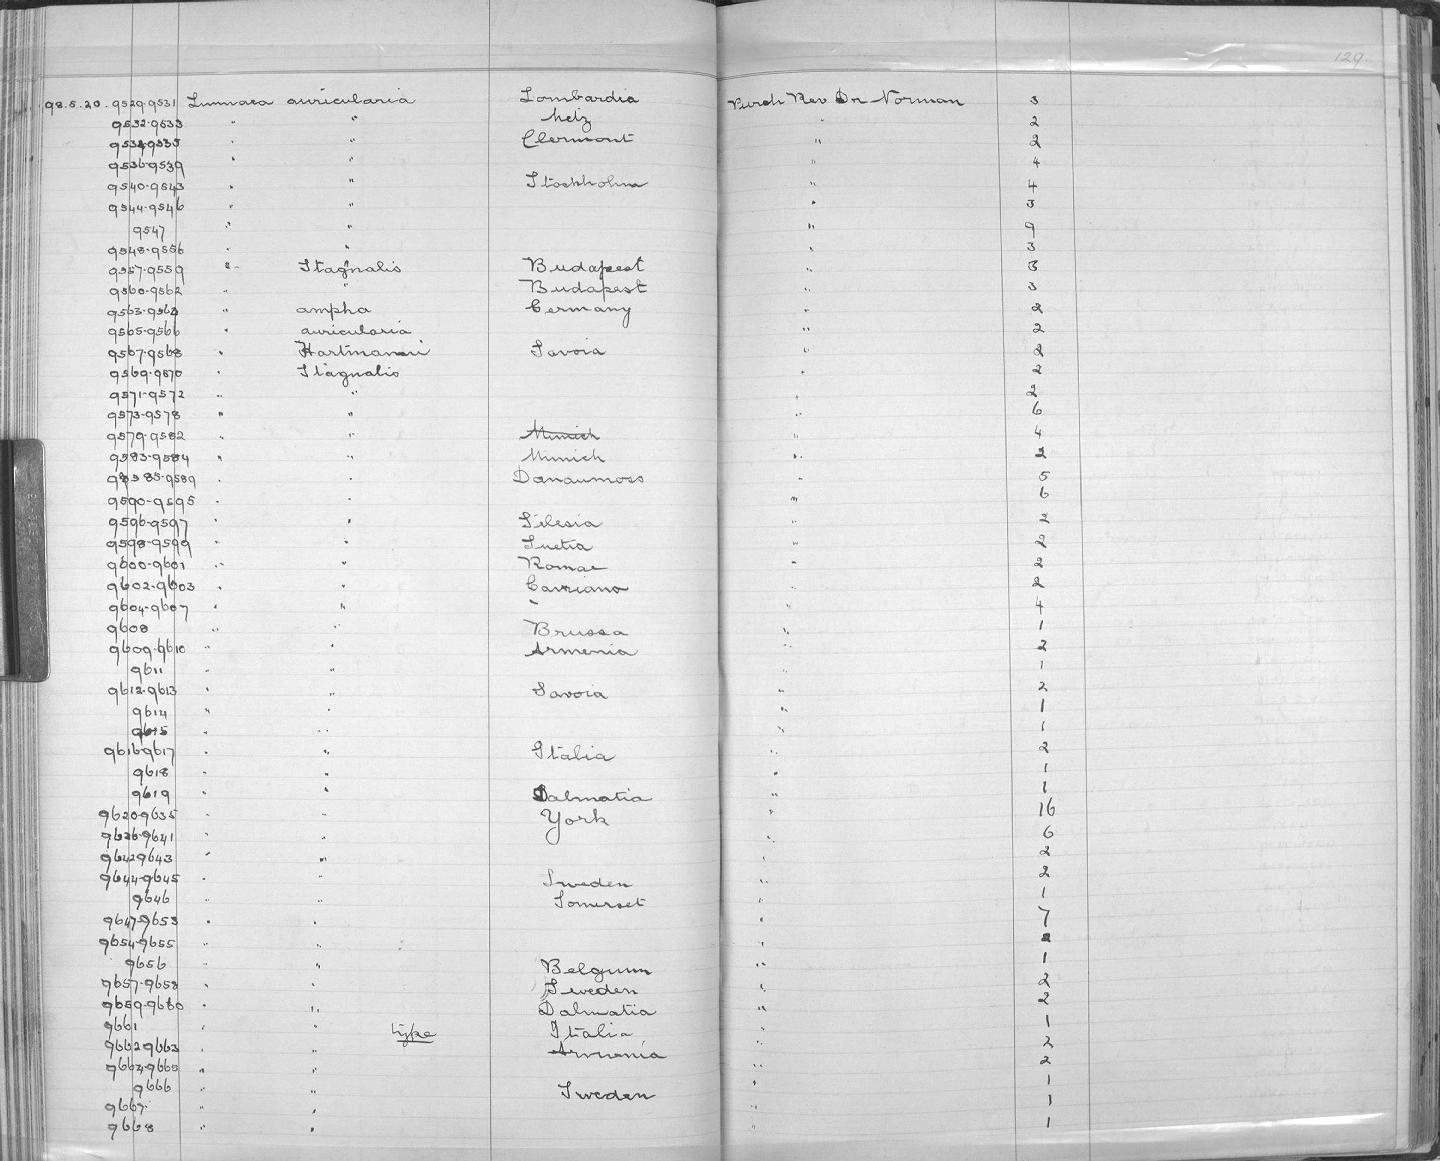 129.
98.5.20. 9529-9531 Limnaea auricularia Lombardia Purch Rev Dr Norman 3
9532-9533 " " Metz " 2
9534-9535 " " Clermont " 2
9536-9539 " " " 4
9540-9543 " " Stockholm " 4
9544-9546 " " " 3
9547 " " " 9
9548-9556 " " " 3
9557-9559 " Stagnalis Budapest " 3
9560-9562 " " Budapest " 3
9563-9564 " ampla Germany " 2
9565-9566 " auricularia " 2
9567-9568 " Hartmanni Savoia " 2
9569-9570 " Stagnalis " 2
9571-9572 " " " 2
9573-9578 " " " 6
9579-9582 " " Munich " 4
9583-9584 " " Munich " 2
9585-9589 " " Danaumoss " 5
9590-9595 " " " 6
9596-9597 " " Silesia " 2
9598-9599 " " Suetia " 2
9600-9601 " " Romae " 2
9602-9603 " " Cavriano " 2
9604-9607 " " " " 4
9608 " " Brussa " 1
9609-9610 " " Armenia " 2
9611 " " " 1
9612-9613 " " Savoia " 2
9614 " " " 1
9615 " " " 1
9616-9617 " " Italia " 2
9618 " " " 1
9619 " " Dalmatia " 1
9620-9635 " " York " 16
9636-9641 " " " 6
9642-9643 " " " 2
9644-9645 " " Sweden " 2
9646 " " Somerset " 1
9647-9653 " " " 7
9654-9655 " " " 2
9656 " " Belgium " 1
9657-9658 " " Sweden " 2
9659-9660 " " Dalmatia " 2
9661 " " type Italia " 1
9662-9663 " " Armenia " 2
9664-9665 " " " 2
9666 " " Sweden " 1
9667 " " " 1
9668 " " " 1